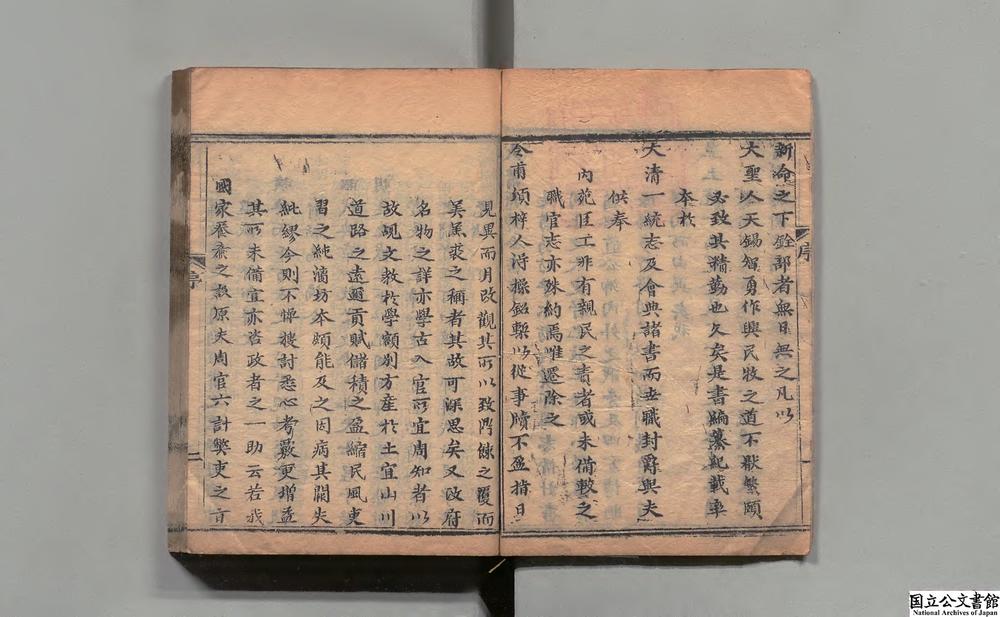 新命之下銓部者無日無之凡以
大聖人天錫智勇作興民牧之道不厭繁頤
必致其精勤也久矣是書編纂紀載率
奉於
大清一統志及會典諸書而世職封爵與夫
供奉
內苑匠工非有親民之責者或未備數之
職官志亦殊約焉惟遷除之
令甫頒梓人潯操鉛槧以從事牘不盈指日
見異而月改觀其所以致門餗之覆而
羔裘之稱者其故可深思矣又政府
名物之詳亦學古入官所宜周知者以
故覘文教於學額別方產於土宜山川
道路之遠邇貢賦儲積之盈縮民風吏
習之純漓坊本頗能及之因病其闕失
紕繆今則不憚搜討悉心考覈更增益
其所未備宜亦咨政者之一助云若我
國家養廉之數原夫周官六計弊吏之言
序
一
序
二
国立公文書館
National Archives of Japan